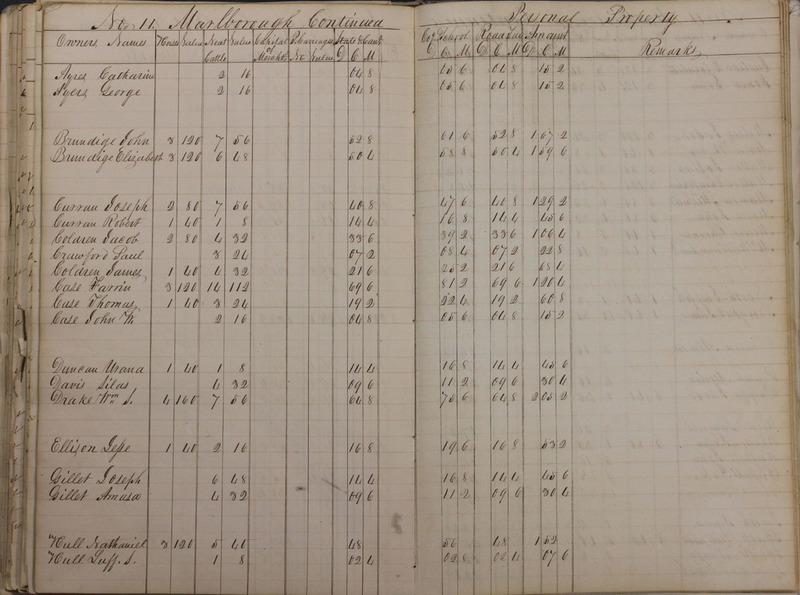 No 11 Marlborough Continued Personal Property
Owners Names Horses Value Neat Cattle Value Capital of Merchts Pl. Carriages No Value State & Cant D C M Co & School D C M Road Tax D C M Amount D C M Remarks
Ayres Catharine 2 16 04 8 05 6 04 8 15 2
Ayers George 2 16 04 8 05 6 04 8 15 2
Brundige John 3 120 7 56 52 8 61 6 52 8 1 67 2
Brundige Elizabeth 3 120 6 48 50 4 58 8 50 4 1 59 6
Curran Joseph 2 80 7 56 40 8 47 6 40 8 1 29 2
Curran Robert 1 40 1 8 14 4 16 8 14 4 45 6
Coldren Jacob 2 80 4 32 33 6 39 2 33 6 1 06 4
Crawford Paul 3 24 07 2 08 4 07 2 22 8
Coldren James 1 40 4 32 21 6 25 2 21 6 68 4
Case Farrin 3 120 14 112 69 6 81 2 69 6 1 20 4
Case Thomas 1 40 3 24 19 2 22 4 19 2 60 8
Case John W 2 16 04 8 05 6 04 8 15 2
Duncan Urana 1 40 1 8 14 4 16 8 14 4 45 6
Davis Silas 4 32 09 6 11 2 09 6 30 4
Drake Wm S. 4 160 7 56 64 8 75 6 64 8 2 05 2
Ellison Jesse 1 40 2 16 16 8 19 6 16 8 53 2
Gillet Joseph 6 48 14 4 16 8 14 4 45 6
Gillet Amasa 4 32 09 6 11 2 09 6 30 4
Hull Nathaniel 3 120 5 40 48 56 48 1 52
Hull Juff. S. 1 8 02 4 02 8 02 4 07 6